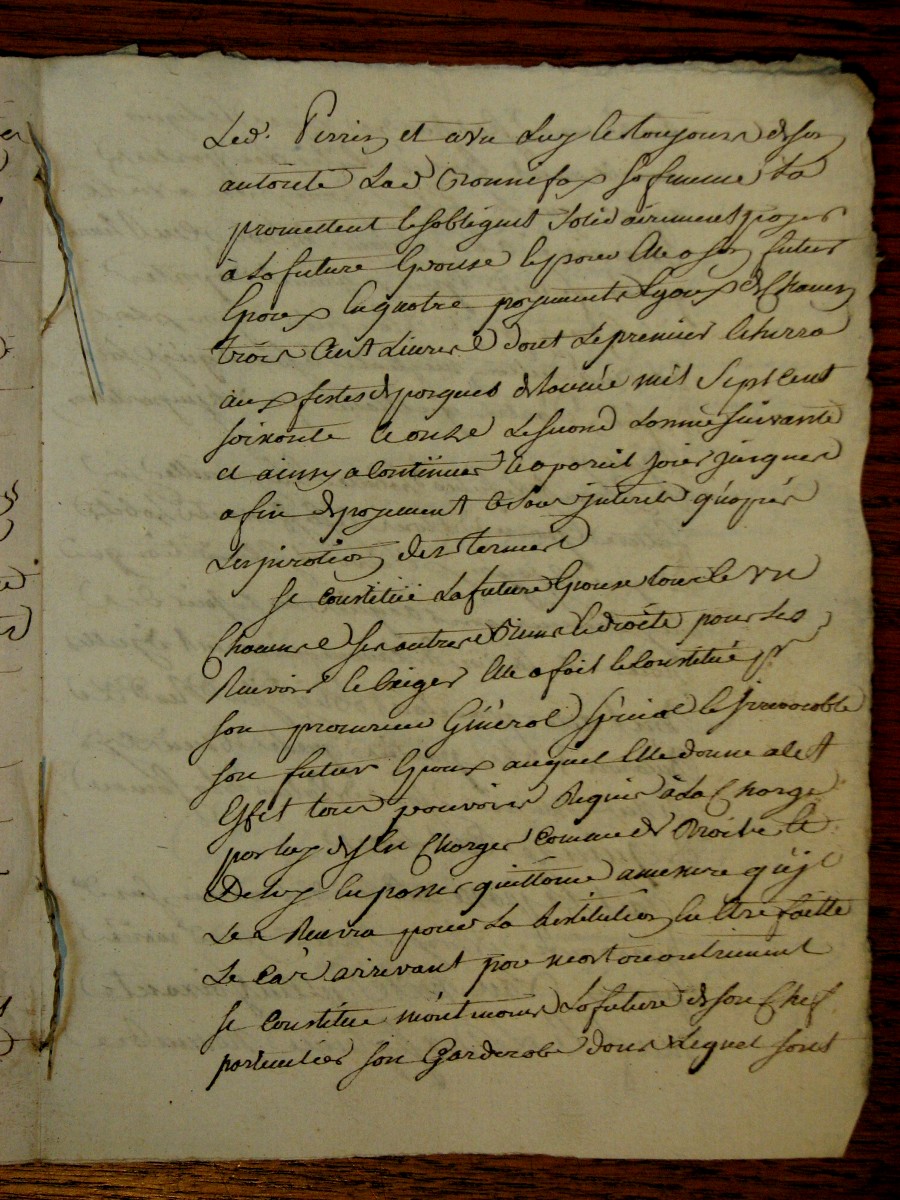 Led. Perrin et avec Luy et toujours de son
autorité Lad Bonnefox sa femme La
promettent et sobligent solidairement payer
à La future Epouse et pour Elle a son futur
Epoux En quatre payements Egaux de Chacun
trois Cent Livres dont Le premier Echerra
aux festes de paques de Lannée mil Sept Cent
soixante et onze Le second Lannée suivante
et ainsy a Continuer a pareil jour jusques
a fin de payement et sans jnterets qu'apres
Lexpiration des termes
se constitüe La future Epouse tous et un
Chacuns ses autres Biens et droits pour Les
Recevoir et Exiger Elle a fait et Constitué pr
son procureur Général Spécial et jrrevocable
son futur Epoux auquel Elle donne a cet
Effet tous pouvoirs Requis à La Charge
par Luy de sen Charger Comme de Droit et
De luy En passer quittance amesure qu'jl
Les Recevra pour La Restitution En Etre faitte
Le Cas arrivant par mort ou autrement
se constitue mêmemoins La future de son Chef
particulier son Garderobe dans Lequel sont